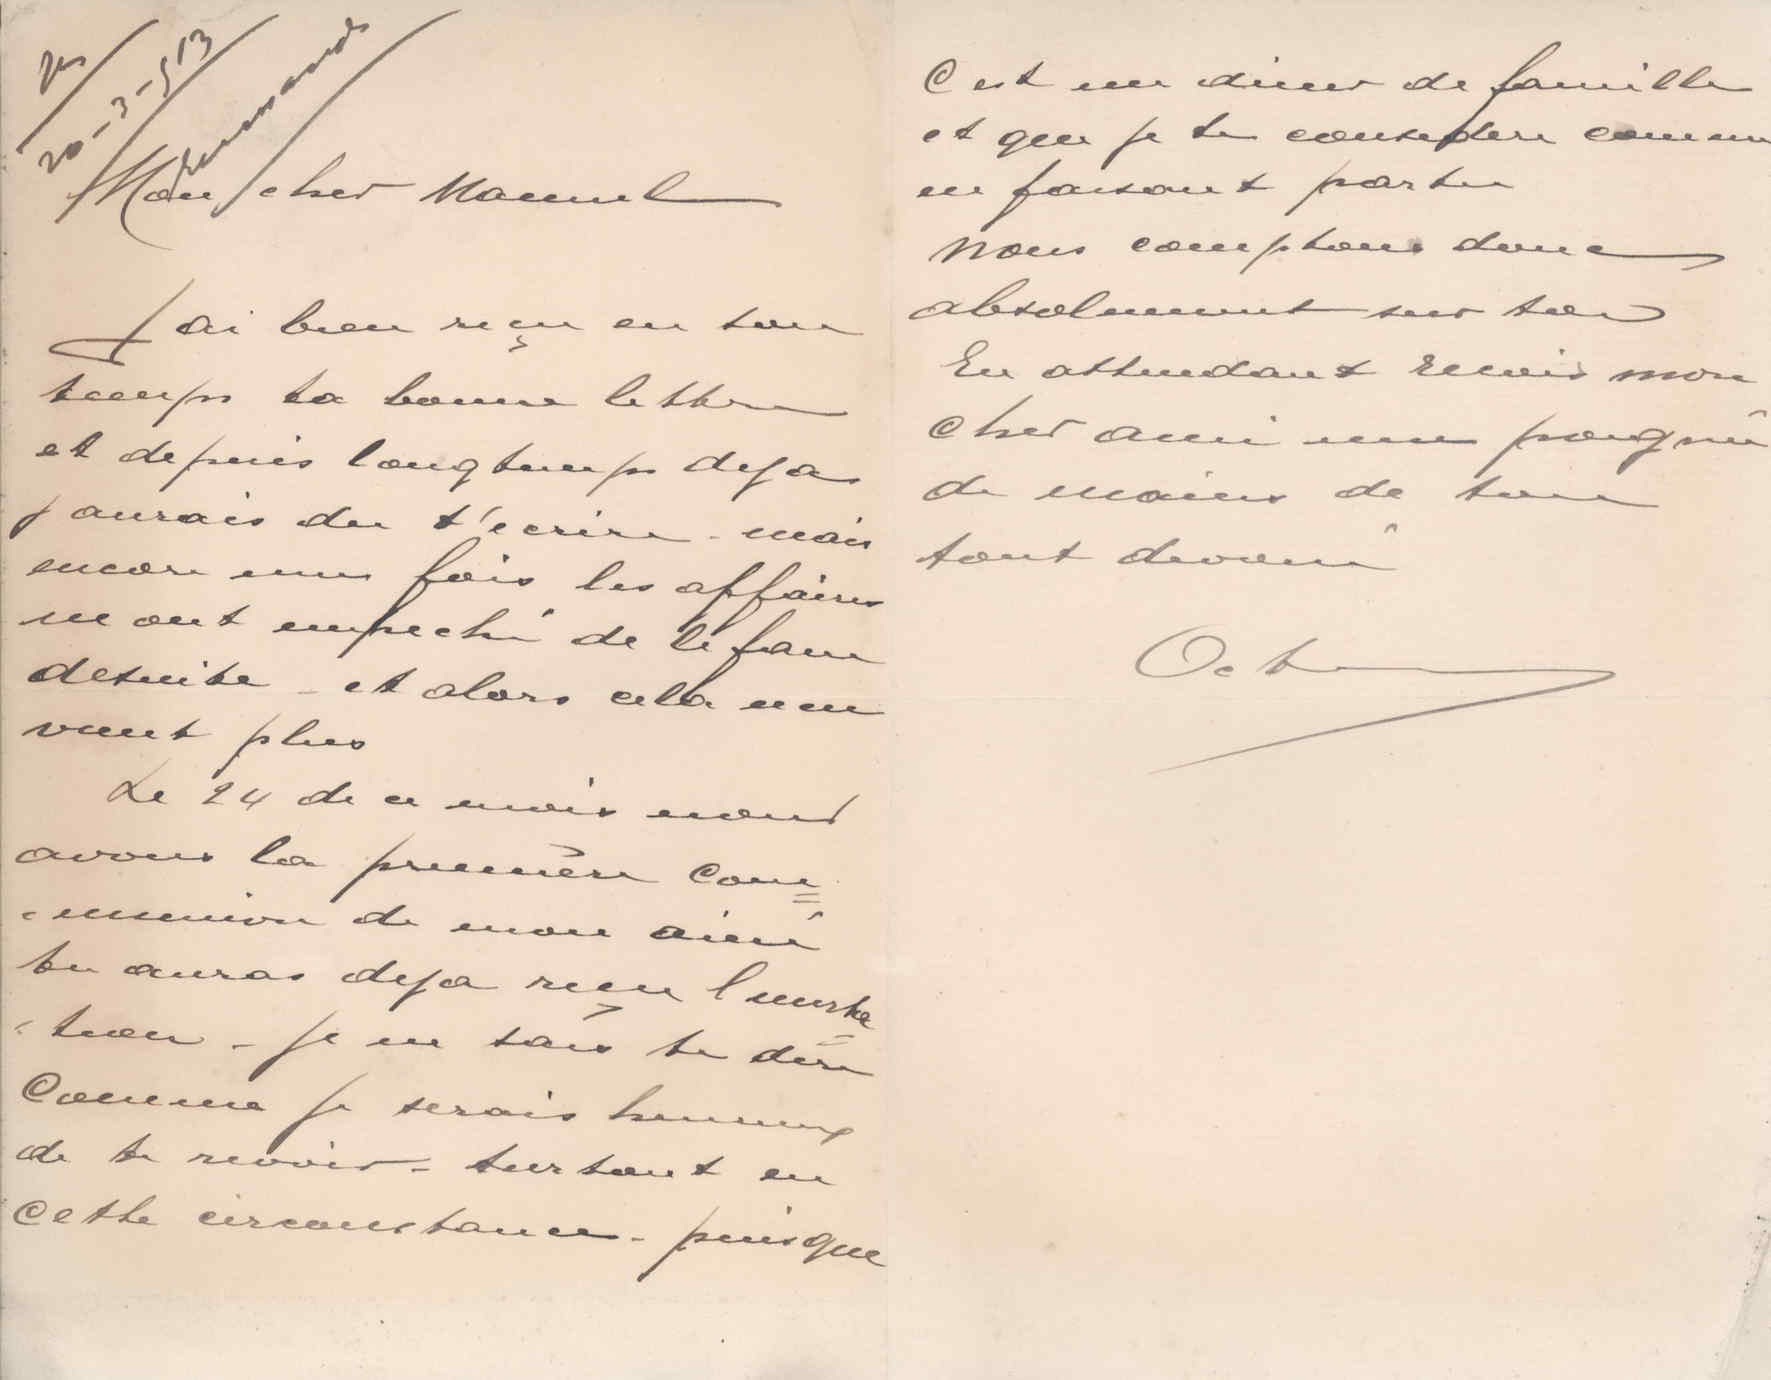 20-3-913
Mon cher Manuel
J ai bien reçu en son
temps ta bonne lettre
et depuis longtemps deja
j aurais du t'ecrire - mais
encore une fois les affaires
m ont empeché de le faire
desuite - et alors cela ne
vient plus
Le 24 de ce mois nous
avons la première Com=
=munion de mon ainé
tu auras deja reçu l invita
=tion - je ne sais te dire
Comme je serais heureux
de te revoir - surtout en
cette circonstance - puisque
C est un diner de famille
et que je te considere comme
en faisant partie
Nous comptons donc
absolument sur toi
En attendant reçois mon
cher ami une poignée
de mains de ton
tout devoué